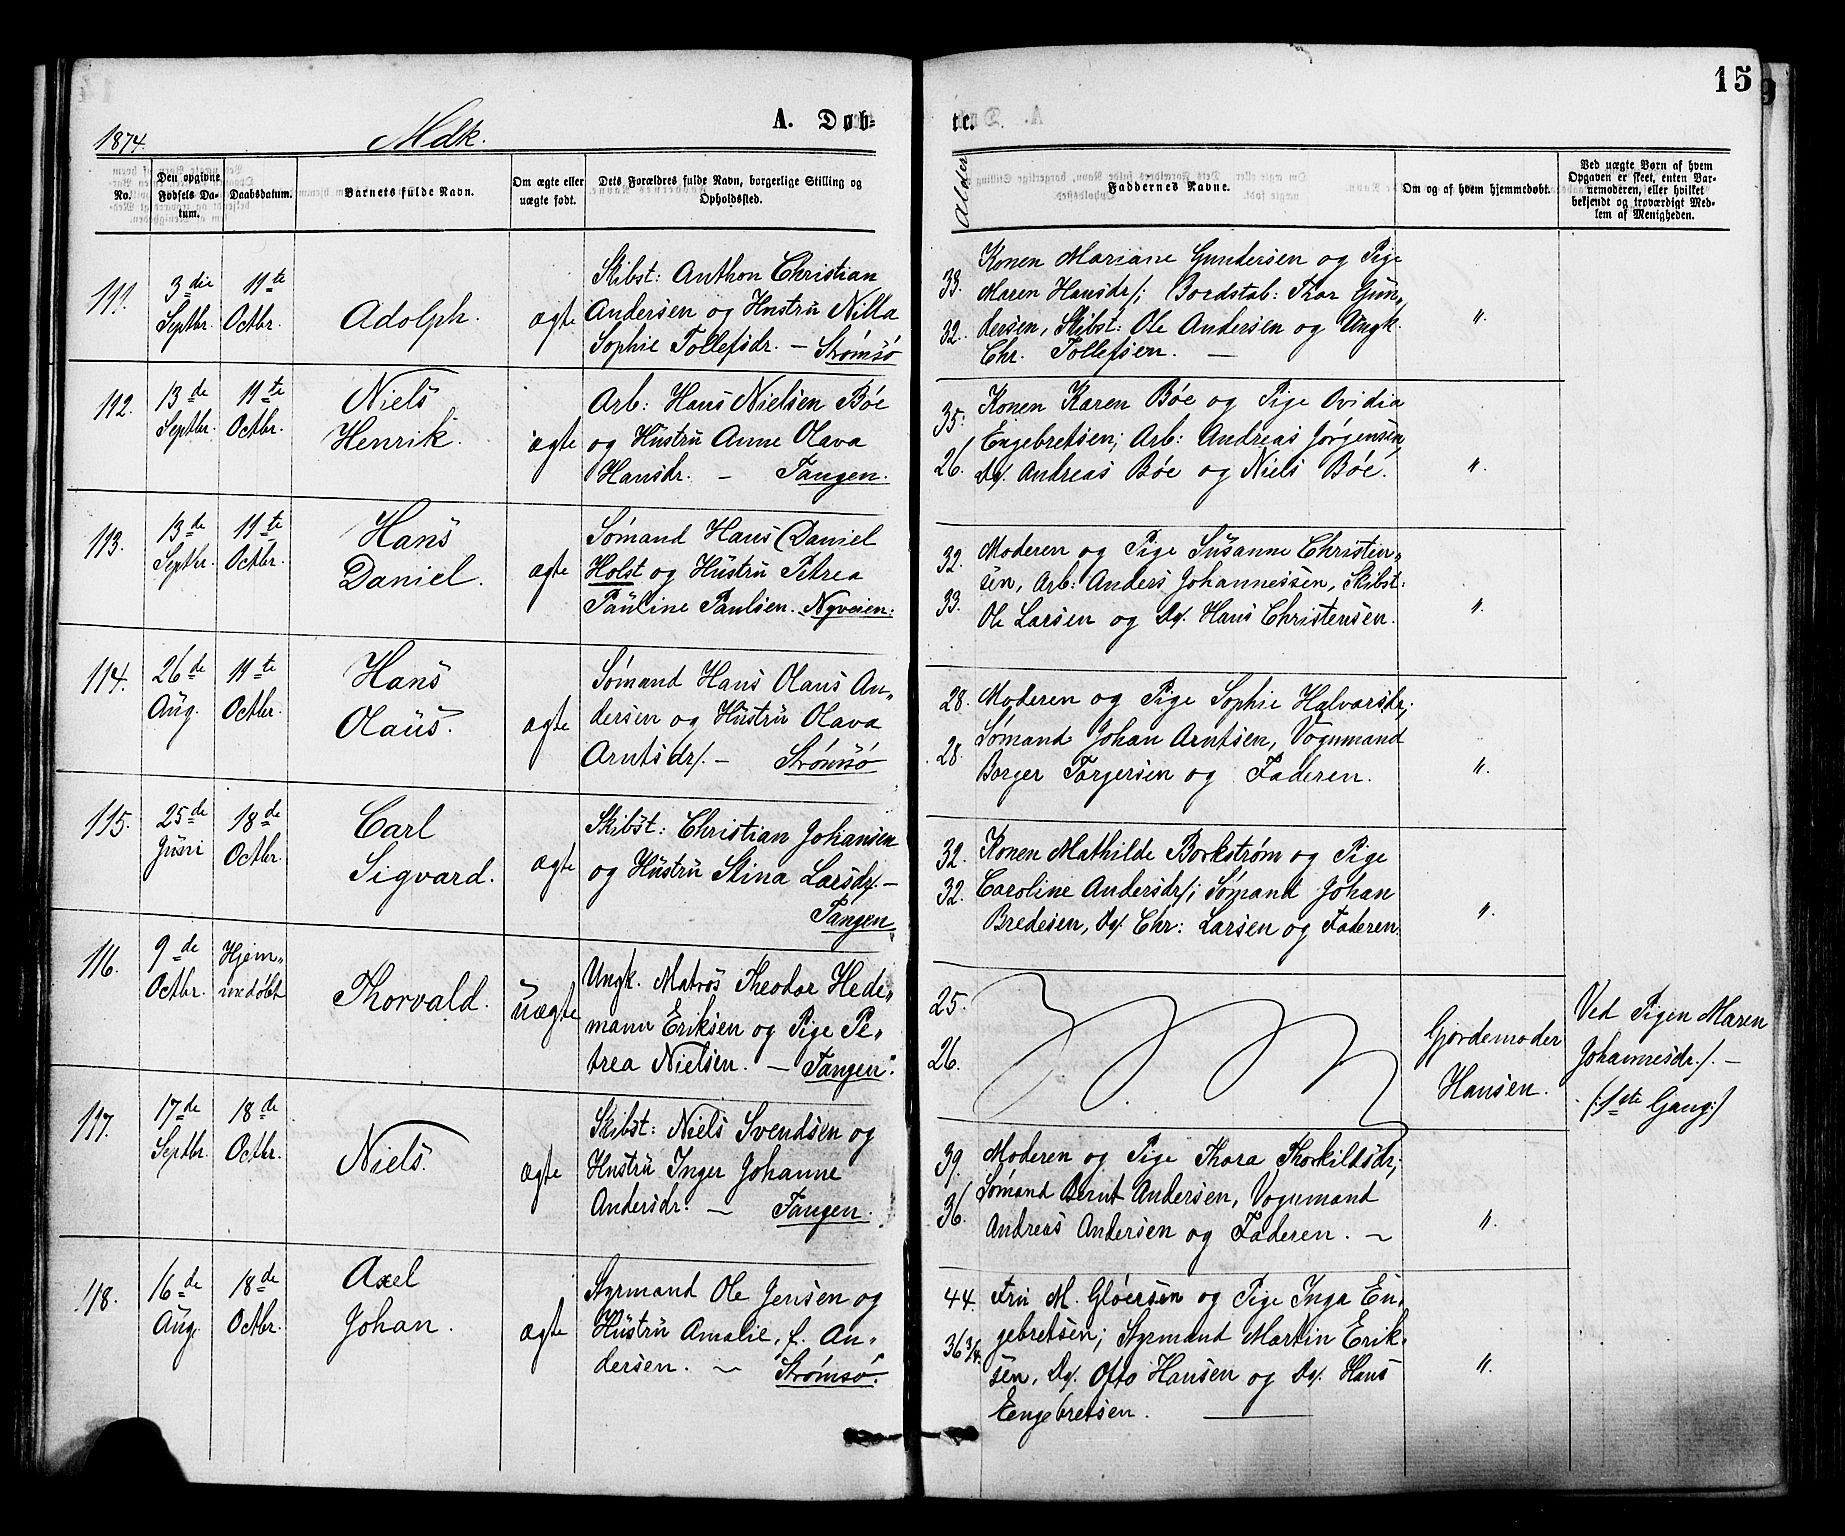 15
1874. Mdk. A. Døb- te.
No.
Den opgivne Fødsels Da- tum.
Daabsdatum.
Barnets fulde Navn.
Om ægte eller uægte født.
Dets Forældres fulde Navn, borgerlige Stilling og Opholdssted.
Alder
Faddernes Navne.
Om og af hvem hjemmedøbt.
Ved uægte Børn af hvem Opgaven er skeet, enten Bar- nemoderen, eller hvilket bekjendt og troværdigt Med- lem af Menigheden.
111.
3die Septbr.
11te Octbr.
Adolph.
ægte
Skibst: Anthon Christian
Andersen og Hustru Nilla
Sophie Tollefsdr. – Strømsø
33.
32.
Konen Mariane Gundersen og Pige
Maren Hansdr/; Bordstab: Thor Gun-
dersen, Skibst: Ole Andersen og Ungk.
Chr. Tollefsen. —
"
112.
13de Septbr.
11te Octbr.
Niels
Henrik.
ægte
Arb: Hans Nielsen Bøe
og Hustru Anne Olava
Hansdr. – Tangen.
35.
26.
Konen Karen Bøe og Pige Ovidia
Engebretsen; Arb: Andreas Jørgensen,
Do/. Andreas Bøe og Niels Bøe.
"
113.
13de Septbr.
11te Octbr.
Hans
Daniel.
ægte
Sømand Hans Daniel
Holst og Hustru Petrea
Pauline Paulsen. Nyveien.
32.
33.
Moderen og Pige Susanne Christen-
sen, Arb: Anders Johannessen, Skibst:
Ole Larsen og Do/. Hans Christensen.
"
114.
26de Aug.
11te Octbr.
Hans
Olaus.
ægte
Sømand Hans Olaus An-
dersen og Hustru Olava
Arntsdr/. – Strømsø
28.
28.
Moderen og Pige Sophie Halvorsdr;
Sømand Johan Arntsen, Vognmand
Borger Torgersen og Faderen.
"
115.
25de Juni
18de Octbr.
Carl
Sigvard.
ægte
Skibst: Christian Johansen
og Hustru Stina Larsdr/. –
Tangen.
32.
32.
Konen Mathilde Borkstrøm og Pige
Caroline Andersdr/; Sømand Johan
Bredesen, Do/. Chr: Larsen og Faderen.
"
116.
9de Octbr.
Hjem- medøbt
Thorvald.
uægte
Ungk. Matros Theodor Hede-
mann Eriksen og Pige Pe-
trea Nielsen. – Tangen.
25.
26.
Gjordemoder
Hansen.
Ved Pigen Maren
Johannesdr/. –
(:1ste Gang:)
117.
17de Septbr.
18de Octbr.
Niels.
ægte
Skibst: Niels Svendsen og
Hustru Inger Johanne
Andersdr. – Tangen.
39.
36.
Moderen og Pige Thora Thorkildsdr;
Sømand Bernt Andersen, Vognmand
Andreas Andersen og Faderen. –
"
118.
16de Aug.
18de Octbr.
Axel
Johan.
ægte
Styrmand Ole Jensen og
Hustru Amalie, f. An-
dersen. – Strømsø.
44.
36 3/4.
Fru M. Gløersen og Pige Inga En-
gebretsen; Styrmand Martin Erik-
sen, Do/. Otto Hansen og Do/. Hans
Eengebretsen. —
"